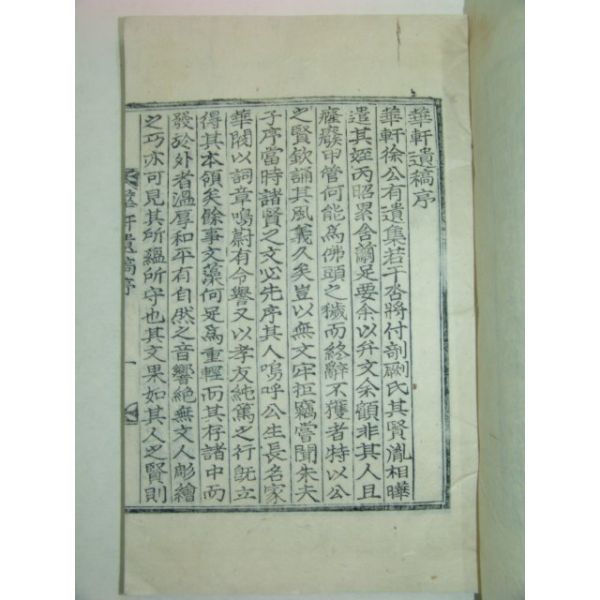 華軒遺稿序
華軒徐公有遺集若干卷將付剞劂氏其賢胤相曄
遣其姪丙昭累舍繭足要余以弁文余顧非其人且
癃廢甲管何能爲佛頭之穢而終辭不獲者特以公
之賢欽誦其風義久矣豈以無文牢拒竊嘗聞朱夫
子序當時諸賢之文必先序其人嗚呼公生長名家
華閥以詞章鳴蔚有令譽又以孝友純篤之行旣立
得其本領矣餘事文藻何足爲重輕而其存諸中而
發於外者溫厚和平有自然之音響絶無文人彫繪
之巧亦可見其所蘊所守也其文果如其人之賢則
華軒遺稿序
一